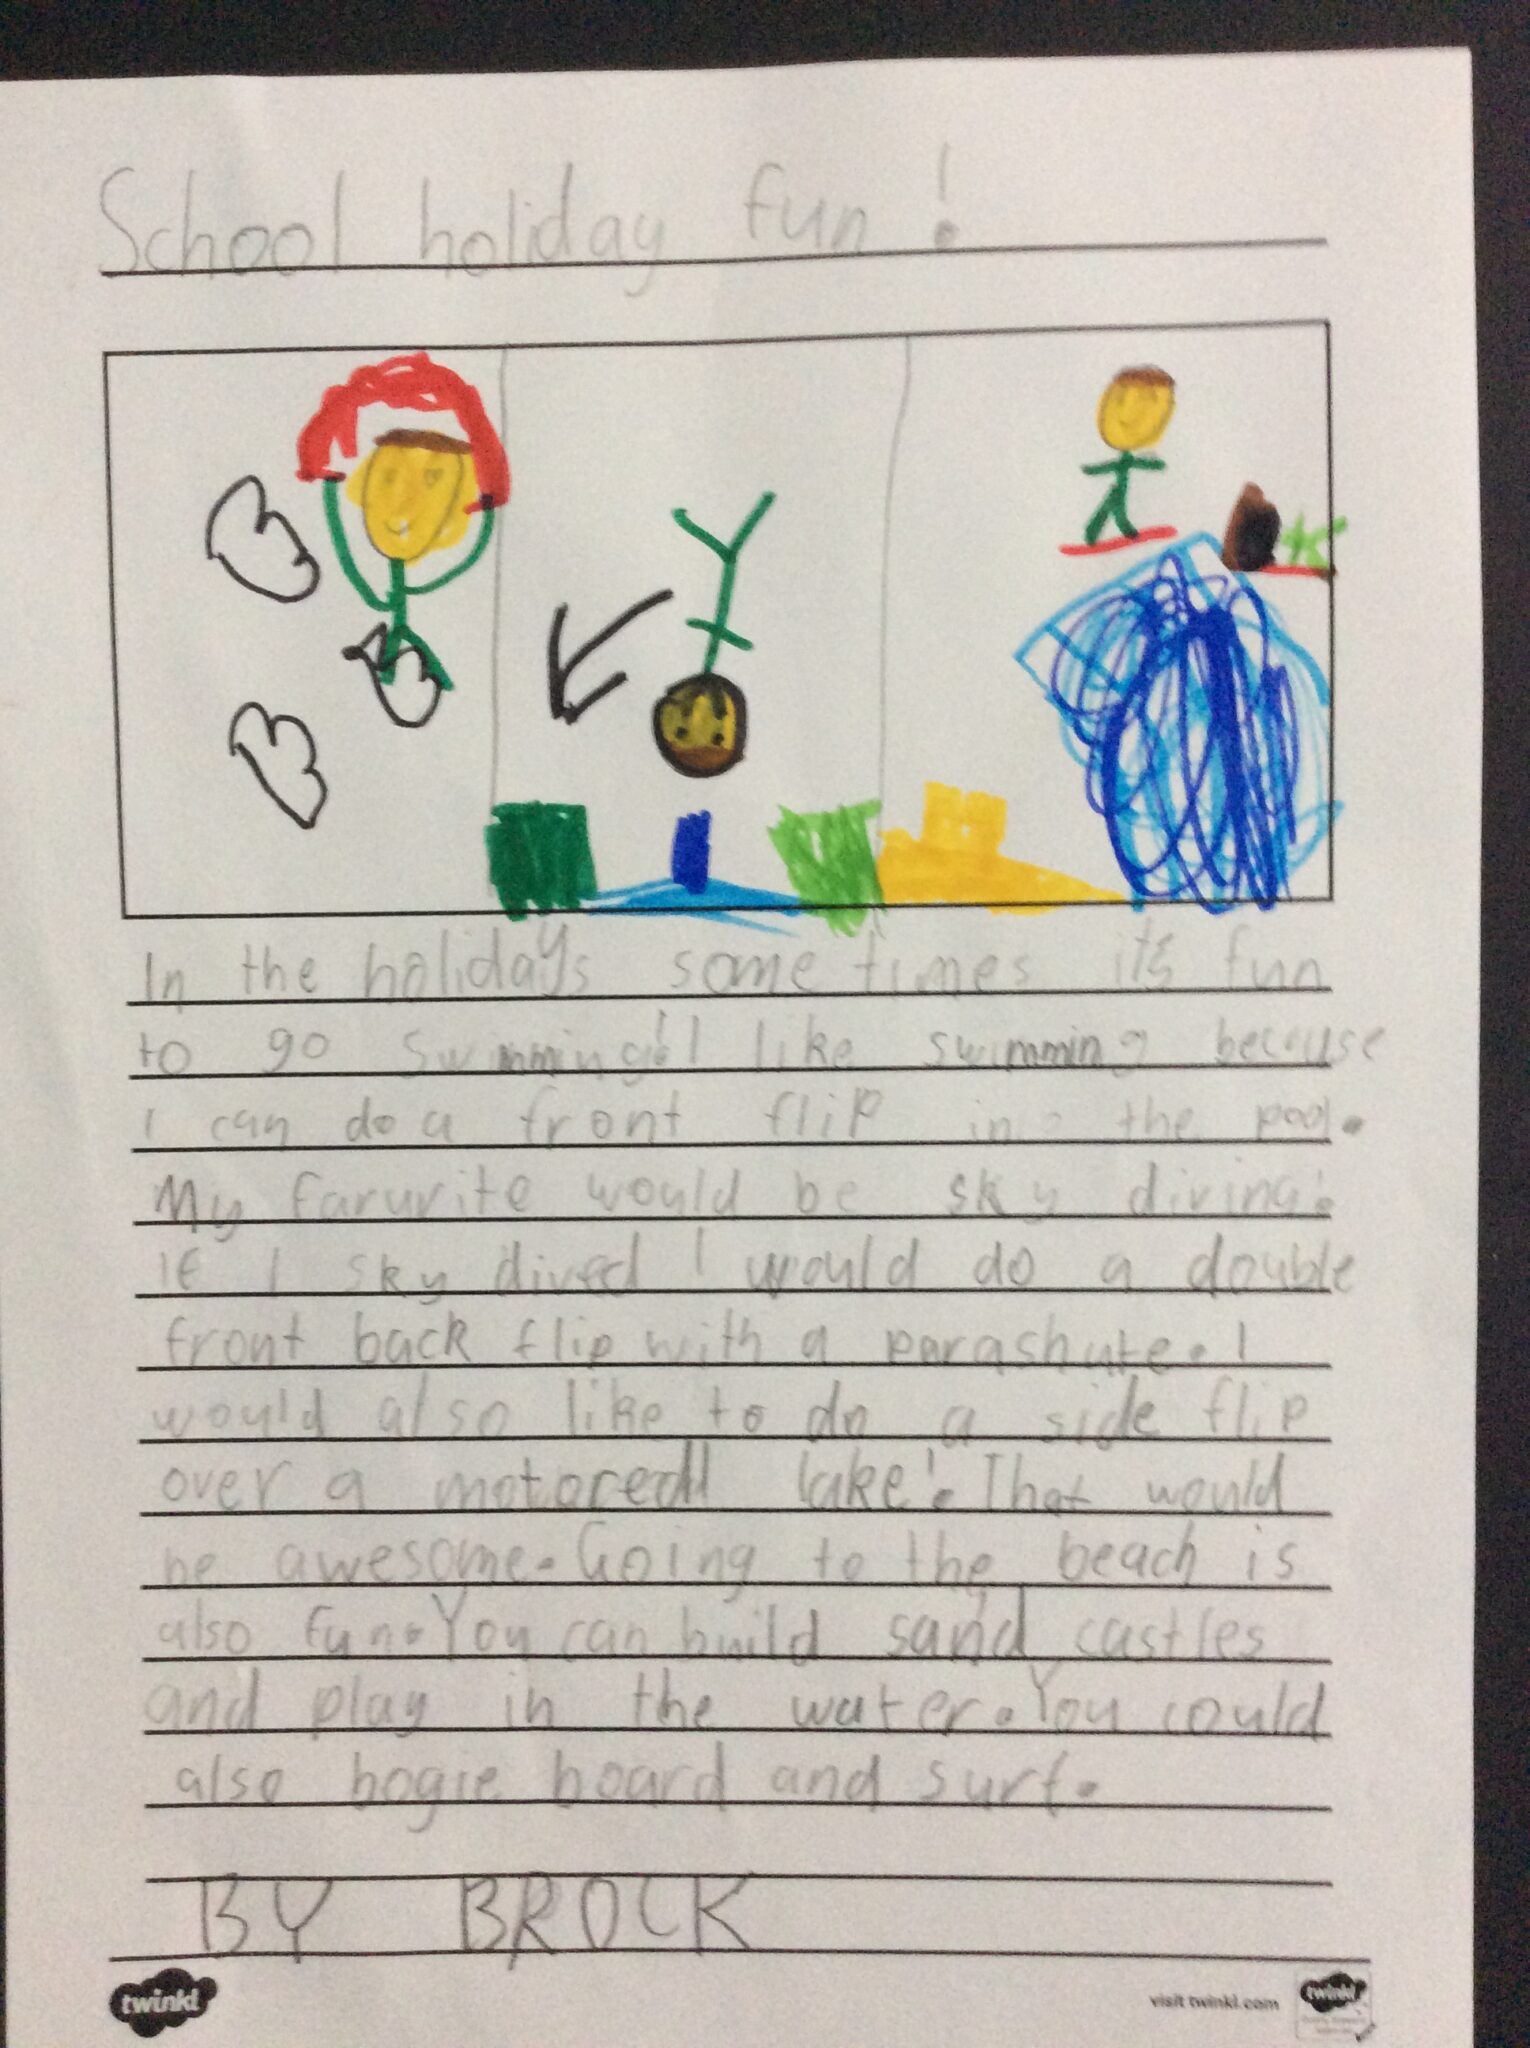 School holiday fun!
In the holidays some times it's fun
to go swimming! I like swimming because
I can do a front flip in the pool.
My farurite would be sky diving!
If I sky dived I would do a double
front back flip with a parashute. I
would also like to do a side flip
over a motored lake! That would
be awesome. Going to the beach is
also fun. You can build sand castles
and play in the water. You could
also bogie board and surf.
BY BROCK
twinkl
visit twinkl.com
twinkl